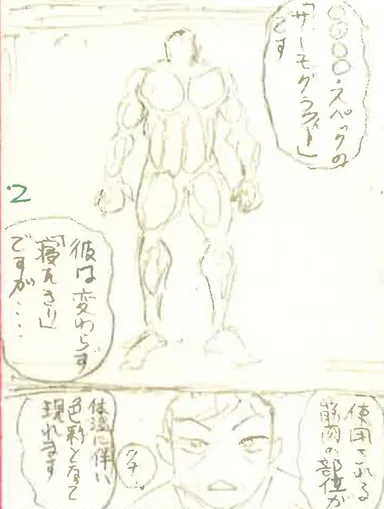 ○○○○・スペックの
「サーモグラフィー」
です
2
彼は変わらず
「寝たきり」
ですが・・・・
使用される
筋肉の部位が
体温に伴い
色彩となて
現れます